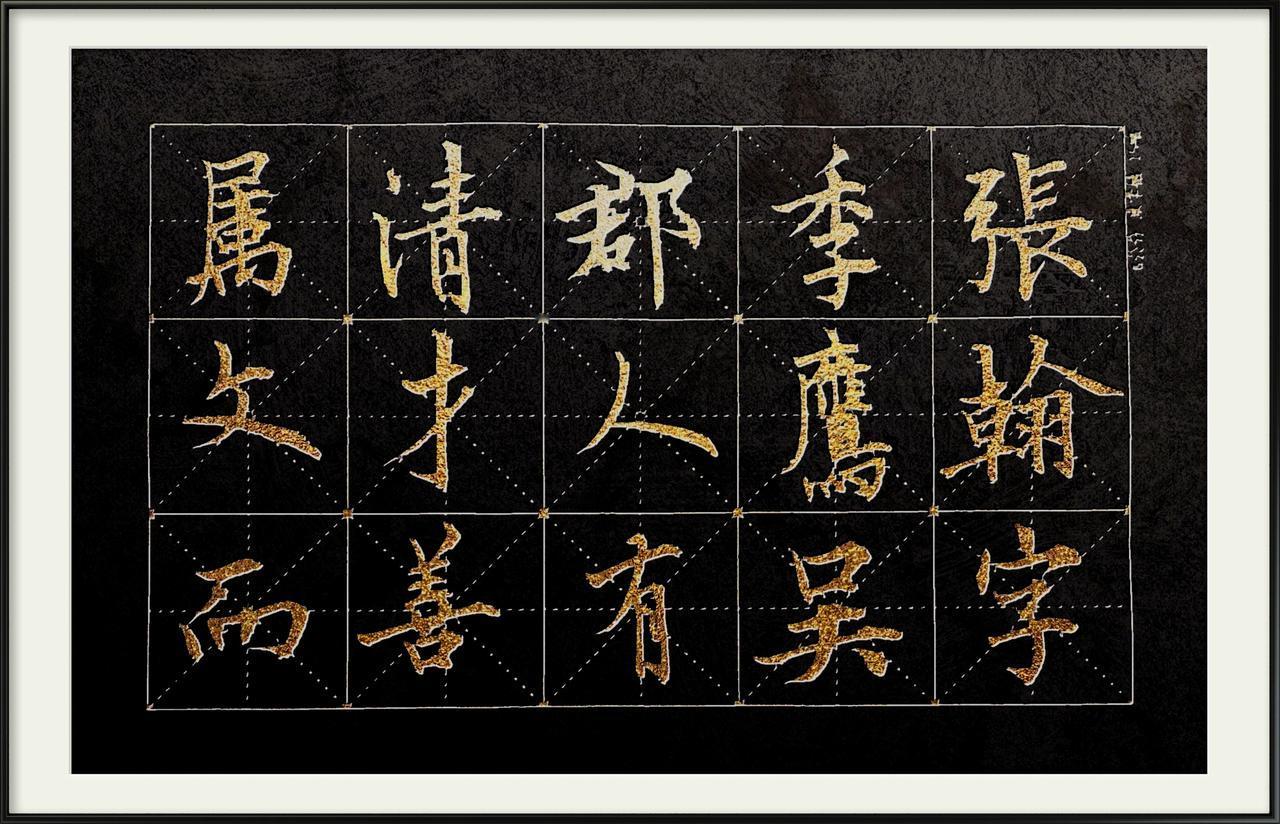 張翰字
季鷹吳
郡人有
清才善
属文而